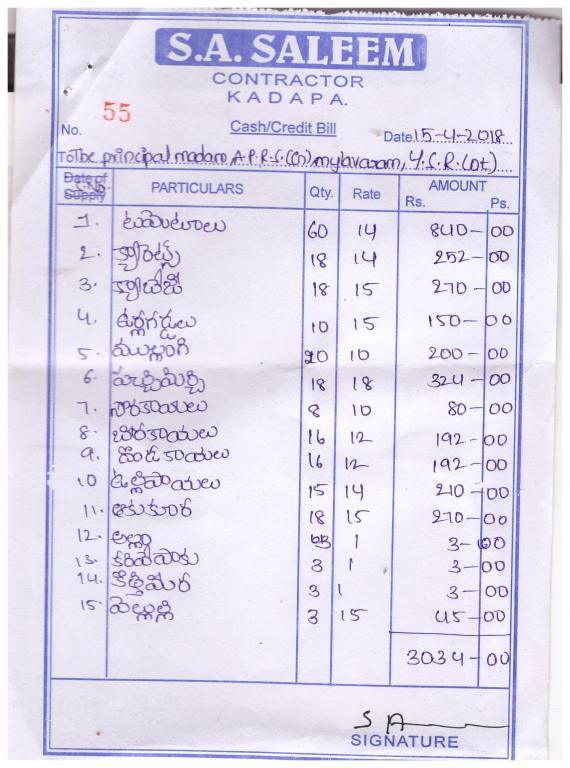 S.A. SALEEM
CONTRACTOR
KADAPA.
No. 55 Cash/Credit Bill Date 15-4-2018
To The principal madam, A.P.R.S.(G) mylavaram, Y.S.R.(Dt)
Date of Supply S.No. PARTICULARS Qty. Rate AMOUNT Rs. Ps.
1. టమెటాలు 60 14 840-00
2. క్యారెట్స్ 18 14 252-00
3. క్యాబేజీ 18 15 270-00
4. ఉర్లగడ్డలు 10 15 150-00
5. ముల్లంగి 20 10 200-00
6. పచ్చిమిర్చి 18 18 324-00
7. సొరకాయలు 8 10 80-00
8. బీరకాయలు 16 12 192-00
9. దొండకాయలు 16 12 192-00
10 ఉల్లిపాయలు 15 14 210-00
11. ఆకుకూర 18 15 270-00
12. అల్లం 3 1 3-00
13. కరివేపాకు 3 1 3-00
14. కొత్తిమీర 3 1 3-00
15. వెల్లుల్లి 3 15 45-00
3034-00
SA
SIGNATURE